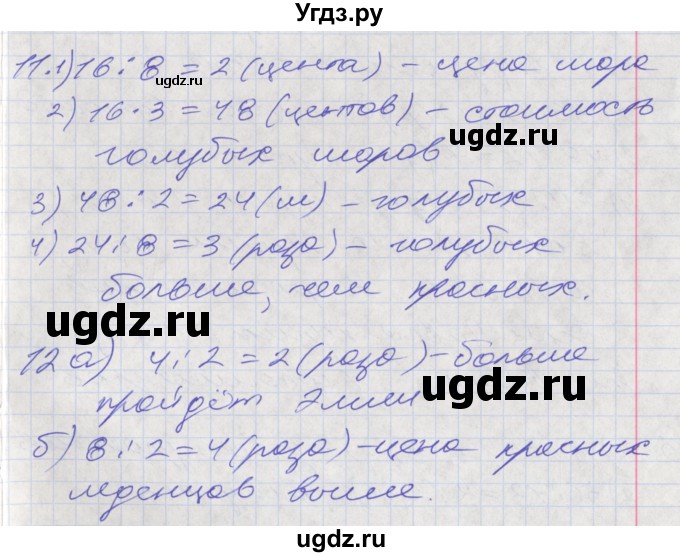 Угдз.ру
11.1) 16 : 8 = 2 (цента) – цена шара
ugdz.ru
2) 16 · 3 = 48 (центов) – стоимость
голубых шаров
3) 48 : 2 = 24 (ш) – голубых
4) 24 : 8 = 3 (раза) – голубых
больше, чем красных.
ugdz.ru
12 а) 4 : 2 = 2 (раза) – больше
ugdz.ru
пройдёт Элли
б) 8 : 2 = 4 (раза) – цена красных
леденцов выше.
ugdz.ru